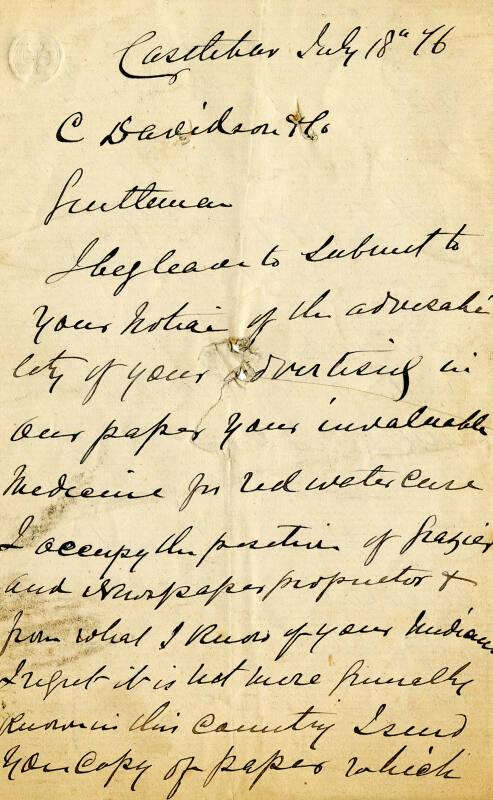 Castlebar July 18th 76
C Davidson & Co
Gentleman
I beg leave to submit to
your Notice of the advisabi
lity of your advertising in
our paper your invaluable
Medicine for red water cure
I occupy the position of Grazier
and Newspaper proprietor &
from what I know of your Medicine
I regret it is not more generally
known in this country I send
you copy of paper which